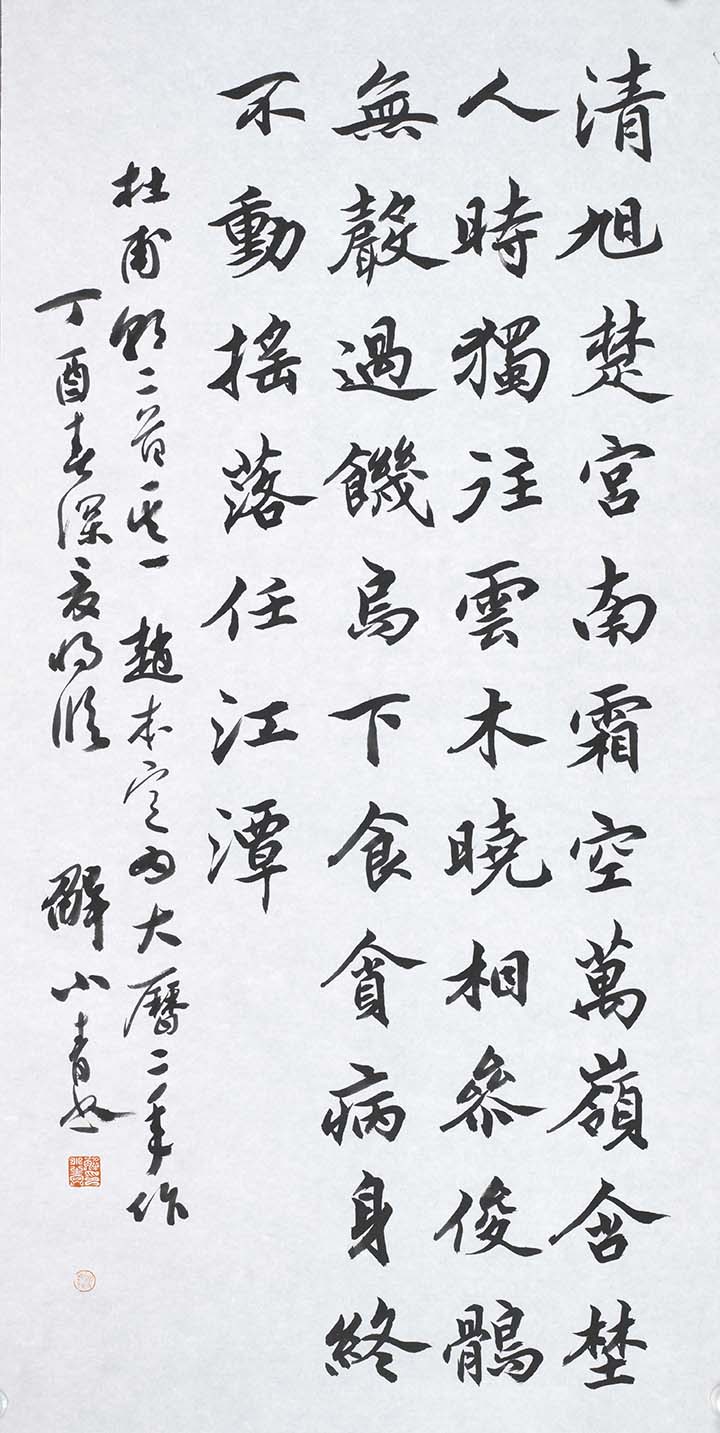 清旭楚宮南霜空萬嶺含埜
人時獨往雲木曉相參俊鶻
無聲過饑烏下食貪病身終
不動搖落任江潭
杜甫朝二首其一趙本定為大曆二年作
丁酉春深夜 解小青書